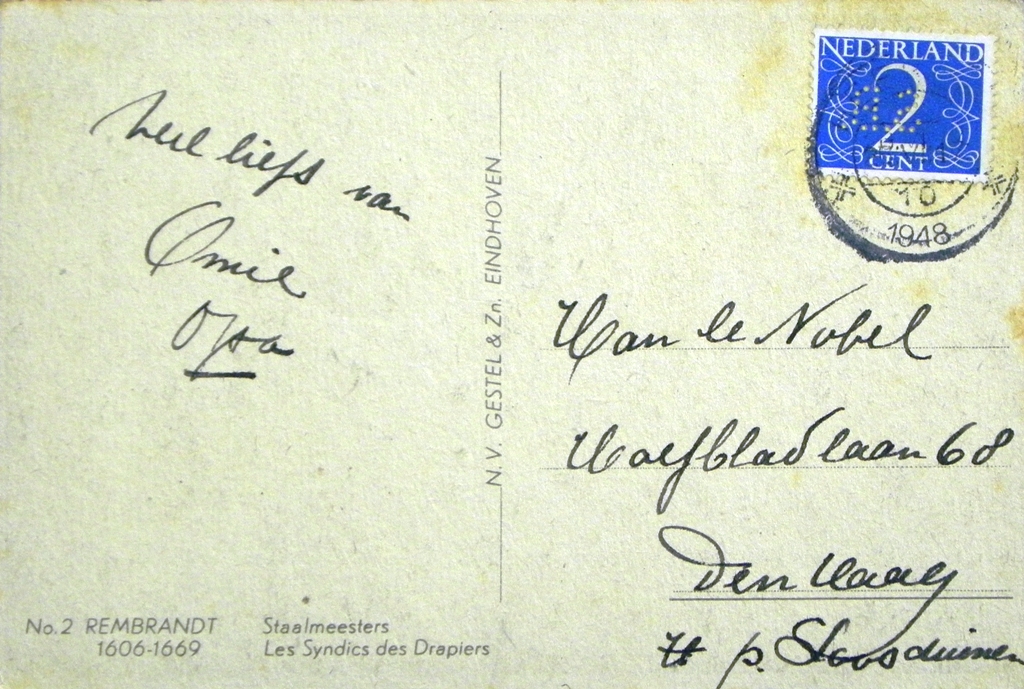 veel liefs van
Omie
Opa
N.V. GESTEL & Zn. EINDHOVEN
No.2 REMBRANDT
1606-1669
Staalmeesters
Les Syndics des Drapiers
NEDERLAND
2
CENT
10
1948
Han le Nobel
laan 68
Den Haag
p. Loosduinen